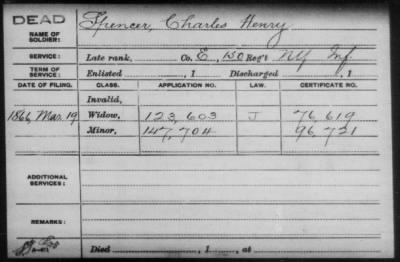 DEAD
NAME OF SOLDIER: Spencer, Charles Henry
SERVICE: Late rank, Co. E, 150 Reg't NY Inf.
TERM OF SERVICE: Enlisted , 1 Discharged , 1
DATE OF FILING. CLASS. APPLICATION NO. LAW. CERTIFICATE NO.
Invalid,
1866, Mar. 19 Widow, 123,603 J 76,619
Minor, 147,704 96,721
ADDITIONAL SERVICES:
REMARKS:
Died , 1 , at